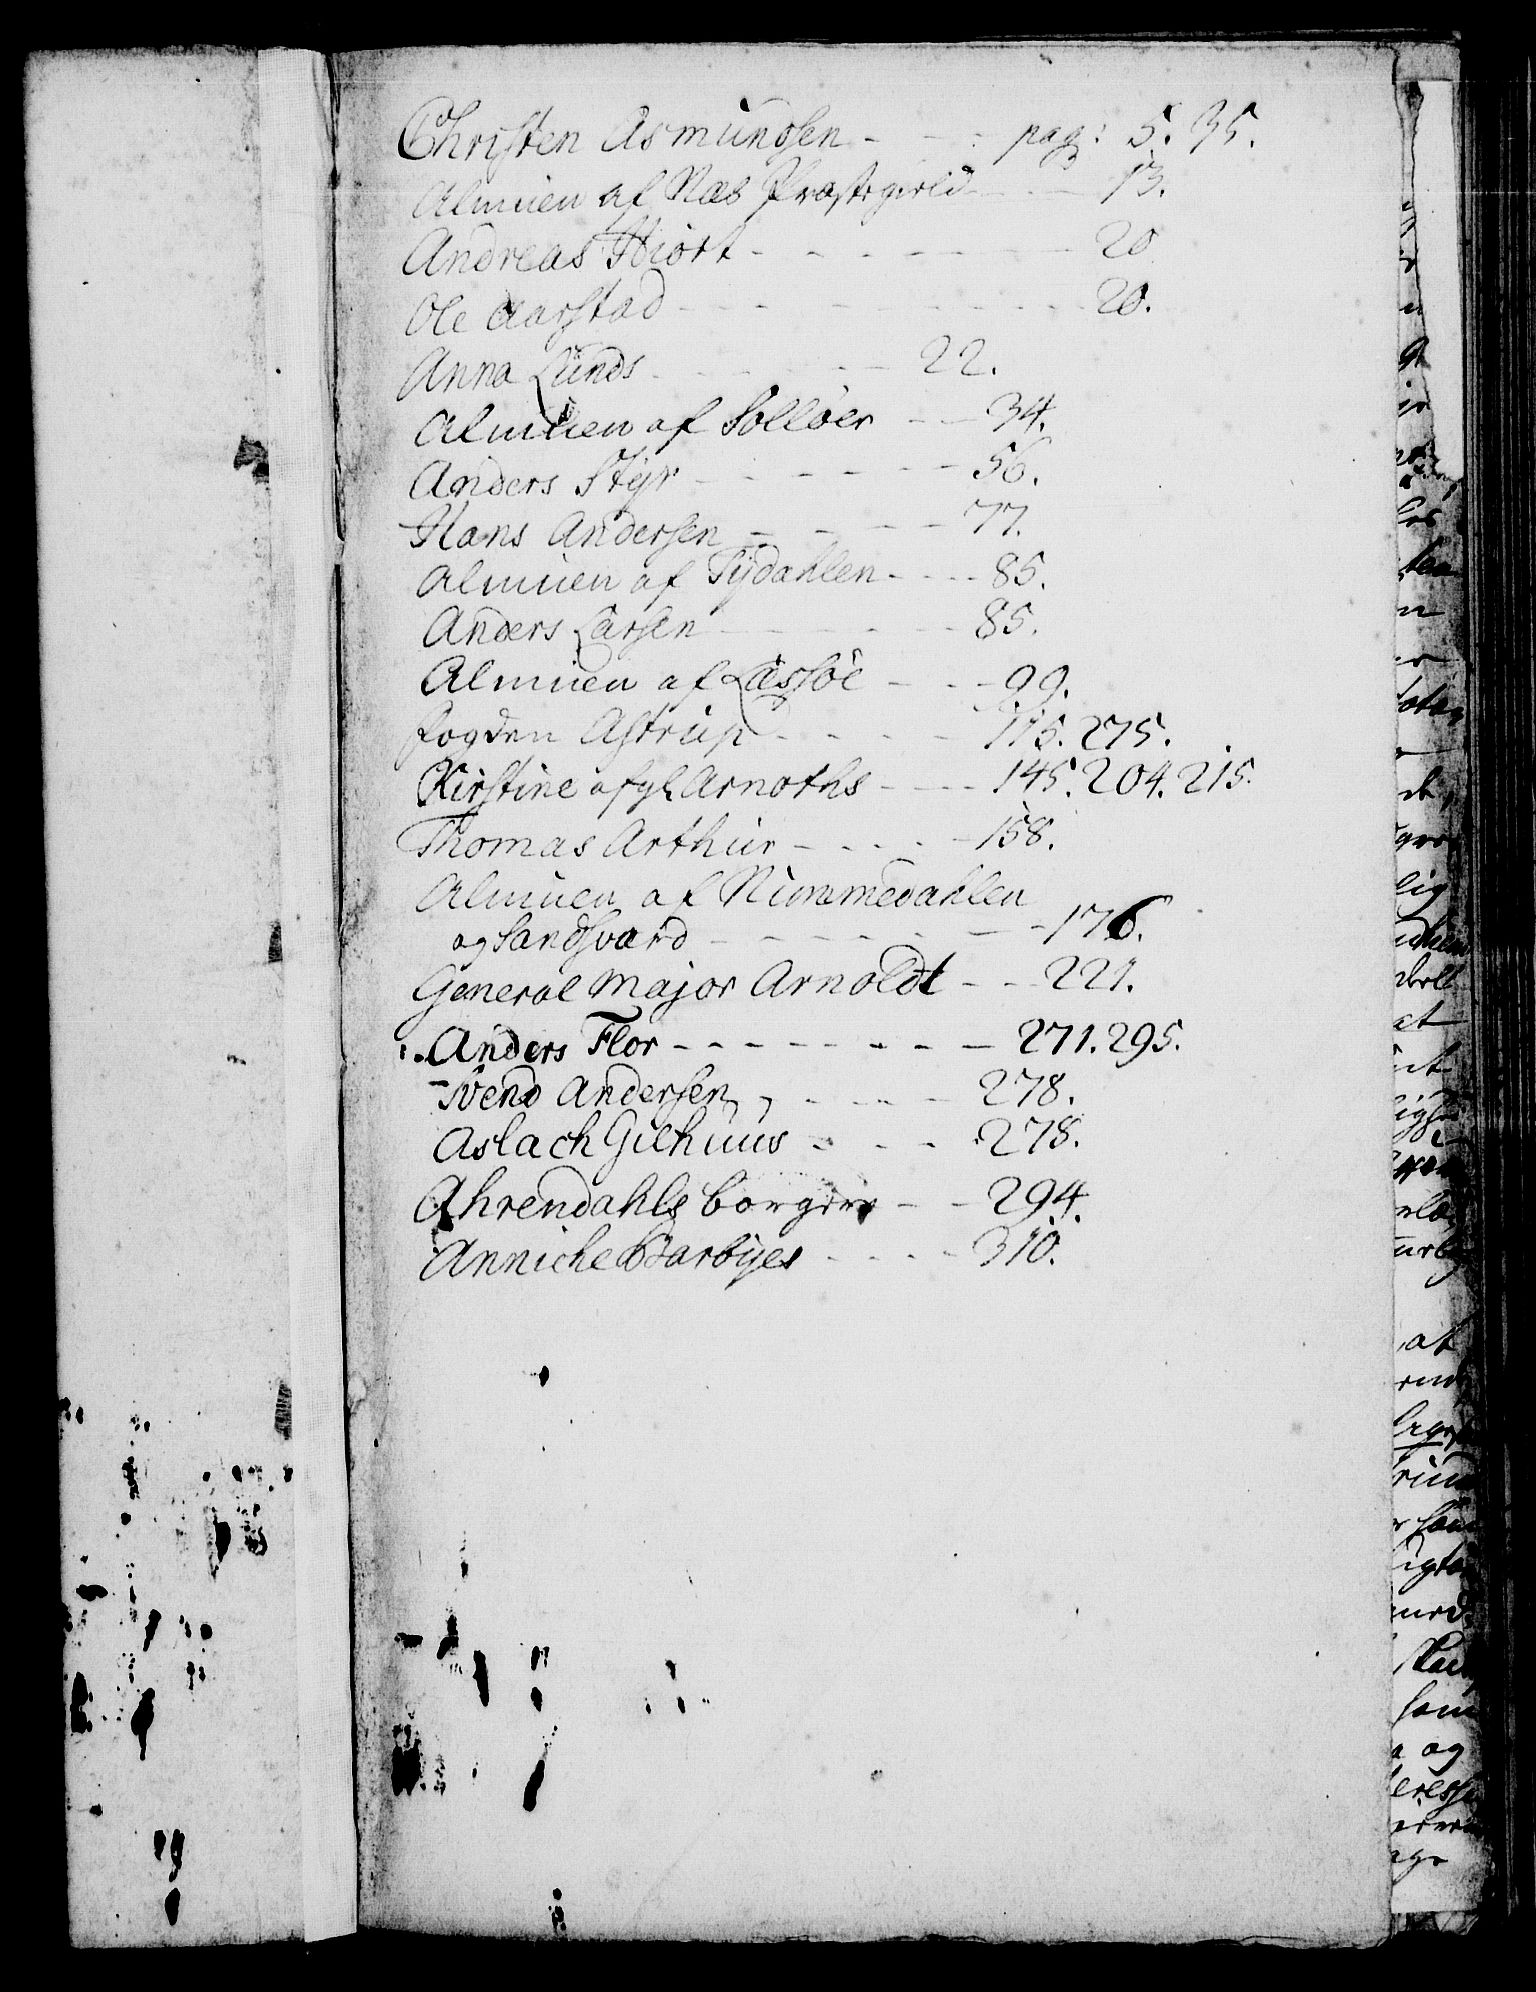 Christen Asmundsen - - : pag: 5. 35.
Almuen af Næs Præstegield - - 13.
Andreas Hiort - - - - - - - 20
Ole Aarstad - - - - - - - - 20.
Anna Lunds - - - - - - 22.
Almuen af Solløer - - - 34.
Anders Styr - - - - - - 56.
Hans Andersen - - - - - 77.
Almuen af Tydahlen - - - - 85.
Anders Larsen - - - - - - 85.
Almuen af Læssøe - - - - 99.
Fogden Astrup - - - - - 115. 275.
Kirstine afgl. Arnoths - - - - 145. 204. 215.
Thomas Arthur - - - - - 158.
Almuen af Nummedahlen
og Sandsværd - - - - - - - - 176.
General Major Arnoldt - - - 221.
Anders Flor - - - - - - - - - 271. 295.
Svend Andersen - - - - - 278.
Aslach Gilhuus - - - - 278.
Ahrendahls borgere - - - 294.
Anniche Barbyes - - - - 310.